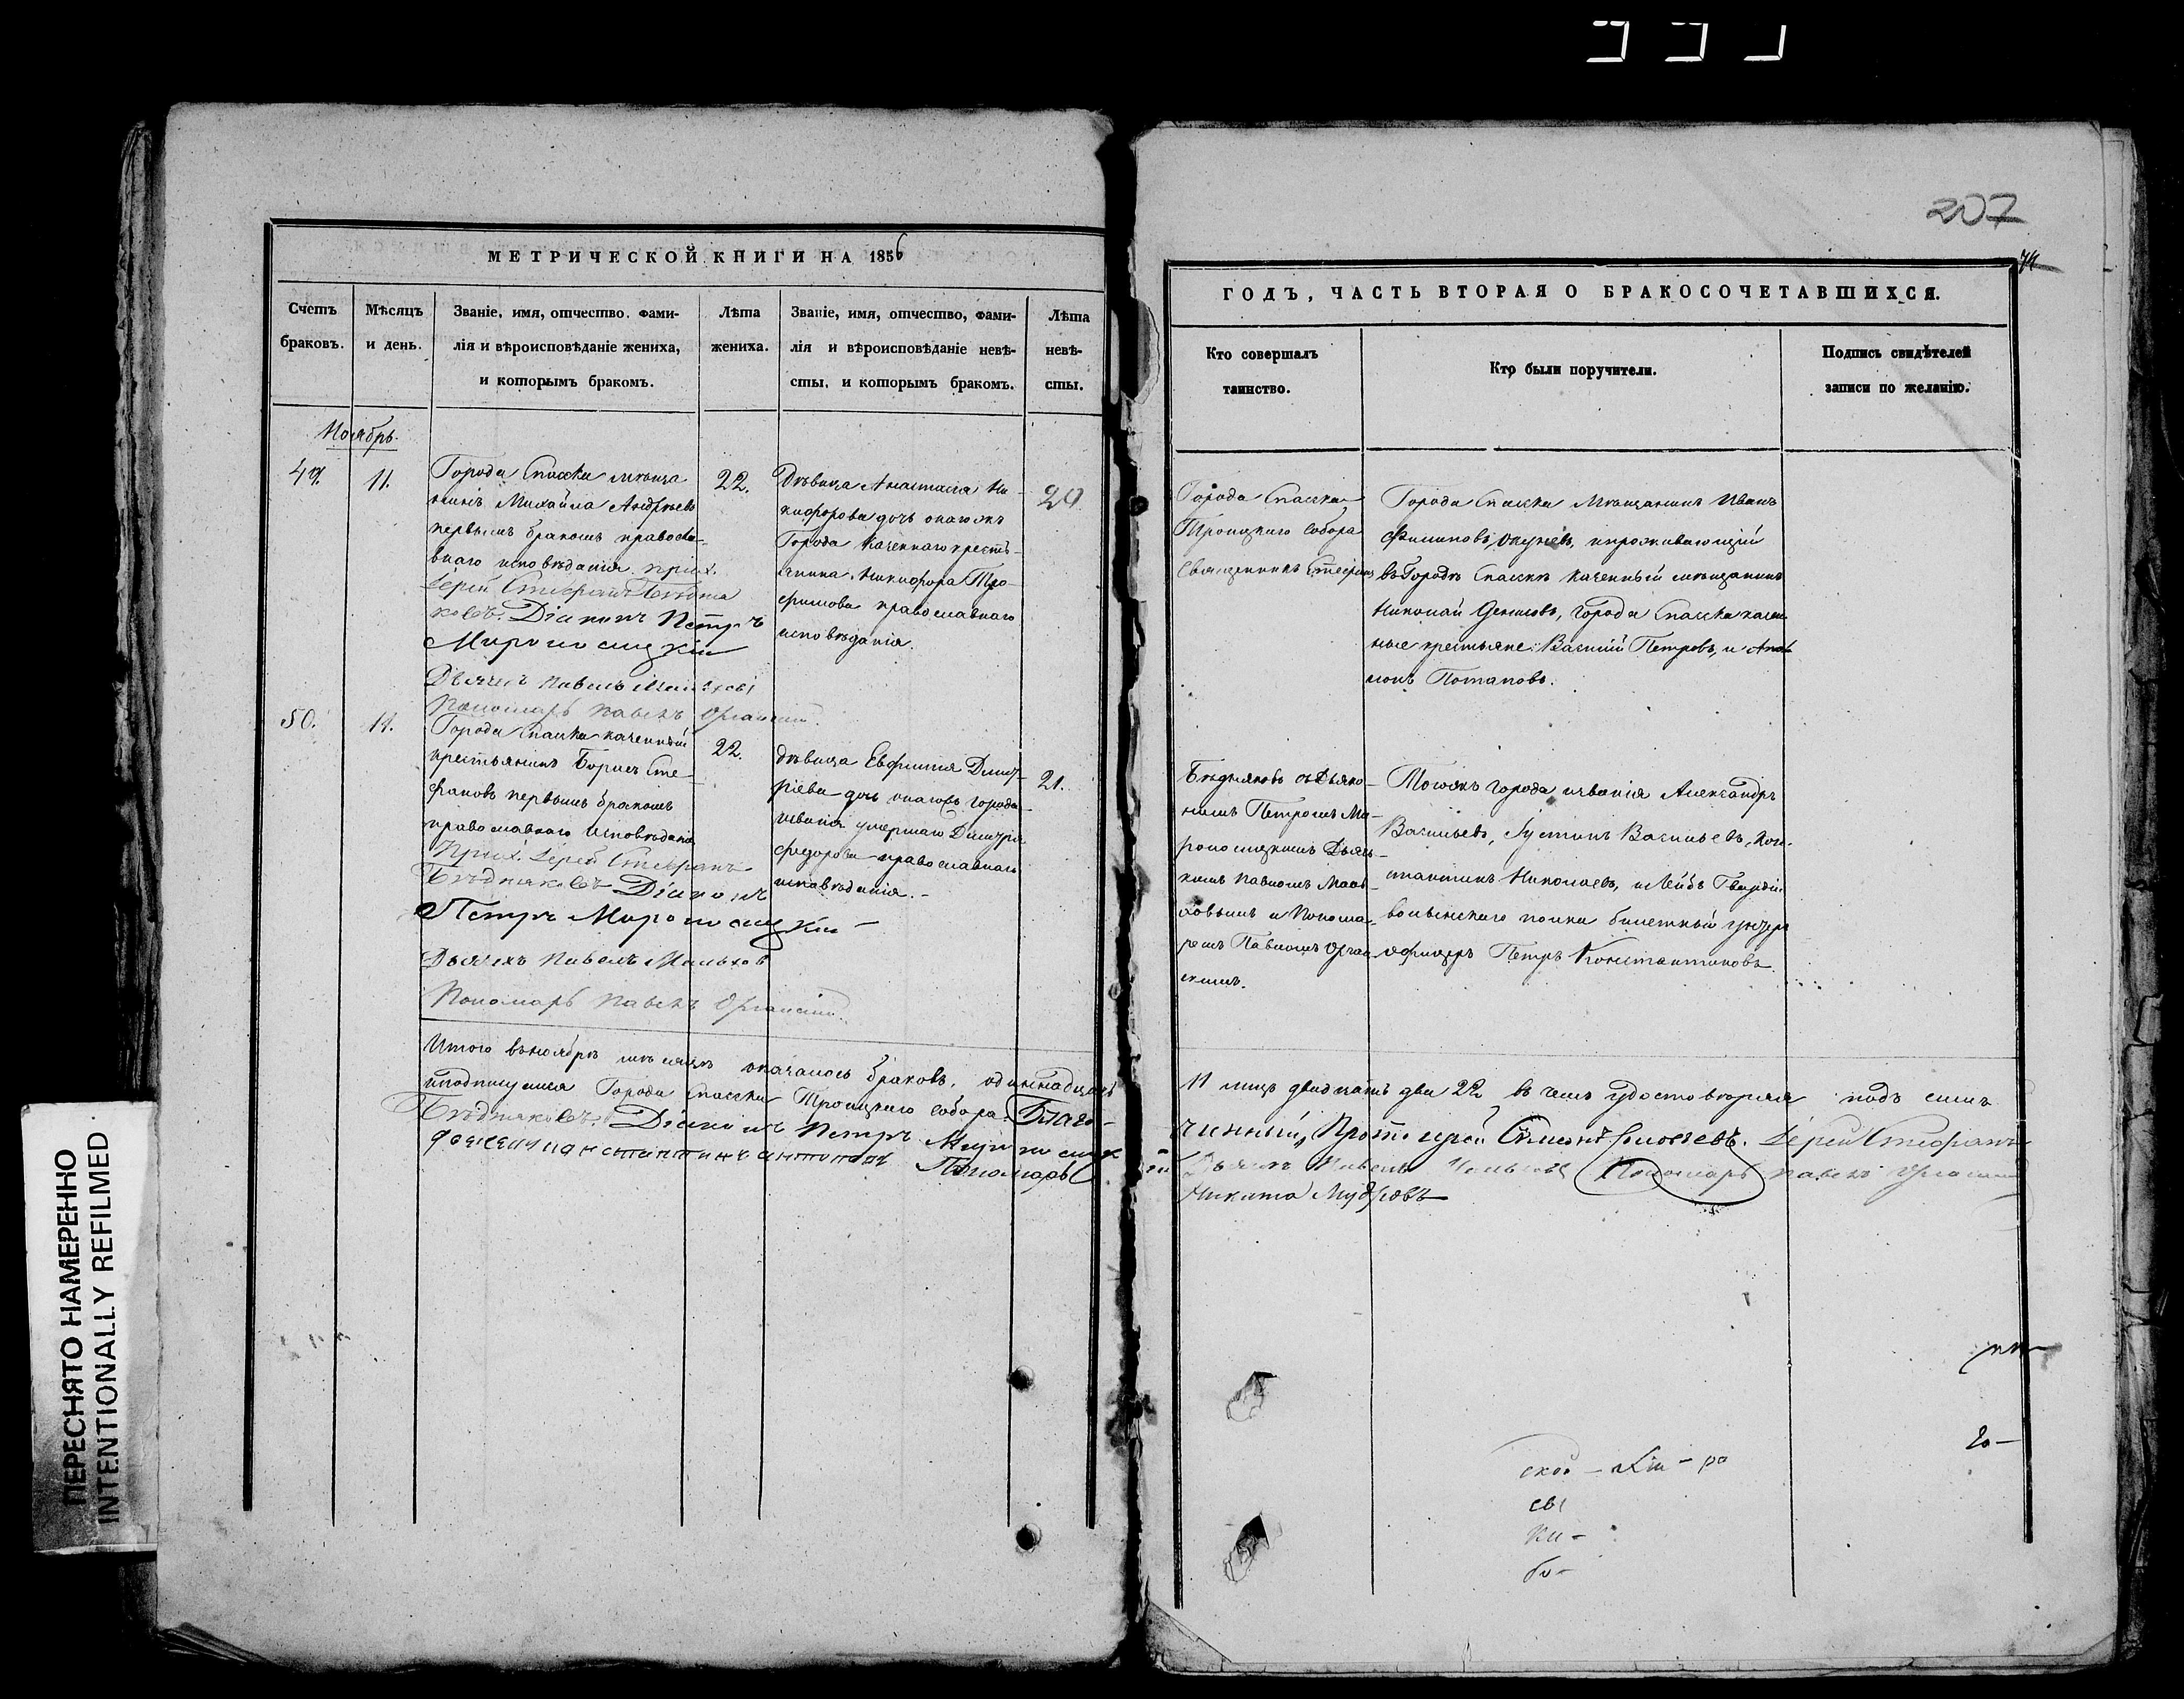 207
74
МЕТРИЧЕСКОЙ КНИГИ НА 1856
ГОДЪ, ЧАСТЬ ВТОРАЯ О БРАКОСОЧЕТАВШИХСЯ.
Счетъ
браковъ.
Мѣсяцъ
и день.
Званіе, имя, отчество. фами-
лія и вѣроисповѣданіе жениха,
и которымъ бракомъ.
Лѣта
жениха.
Званіе, имя, отчество, фами-
лія и вѣроисповѣданіе невѣ-
сты, и которымъ бракомъ.
Лѣта
невѣ-
сты.
Кто совершалъ
таинство.
Кто были поручители.
Подпись свидѣтелей
записи по желанію.
Ноябрь.
11.
Города Спаска мѣща
нинъ Михайла Андрѣевъ
первымъ бракомъ правосла-
внаго исповѣданія.
Іерей Стефанъ Бѣдня
ковъ. Діаконъ Петръ
Мироносицкій
Дьячекъ Павелъ Мальховъ
Пономарь Павелъ
22.
Дѣвица Анастасія Ни-
кифорова дочь онагожъ
Города Казеннаго кресть-
янина Никифора Тро-
фимова православнаго
исповѣданія.
Города Спаска
Троицкаго собора
Священникъ Стефанъ
Города Спаска Мѣщанинъ Иванъ
Филиповъ, Окуневъ, и проживающій
въ Городѣ Спаскѣ Казенный мѣщанинъ
Николай Денисовъ, города Спаска казен
ные крестьяне: Василій Петровъ, и
Потаповъ.
50.
11.
Города Спаска казенный
крестьянинъ Борисъ Сте-
фановъ первымъ бракомъ
православнаго исповѣданія
Іерей Стефанъ
Бѣдняковъ Діаконъ
Петръ Мироносицкій
Дьячекъ Павелъ Мальхов
Пономарь Павелъ
22.
дѣвица Евфимія Димит-
ріева дочь онаговъ города
умершаго Димитрія
Федорова православнаго
исповѣданія.
21.
Бѣдняковъ съ Дьяко-
номъ Петромъ Ми-
роносицкимъ Дьяч-
комъ Павломъ Маль-
ховымъ и Понома-
ремъ Павломъ
скимъ.
Тогожъ города Александръ
Васильевъ, Устинъ Васильевъ, Кон-
стантинъ Николаевъ, и Лейбъ Гвардіи
волынскаго полка билетный унтеръ
офицеръ Петръ Константиновъ.
Итого въ ноябрѣ мѣсяцѣ оказалось браковъ, одиннадцать
11 лицъ двадцать два 22 въ чемъ удостовѣряя подъ симъ
и подписуемся Города Спаска Троицкаго собора. Благо-
чинный, Протоіерей Іерей Стефанъ
Бѣдняковъ. Діаконъ Петръ
Дьячекъ Павелъ Пономарь Павелъ
Пономарь
Никита Мудровъ
ПЕРЕСНЯТО НАМЕРЕННО
INTENTIONALLY REFILMED